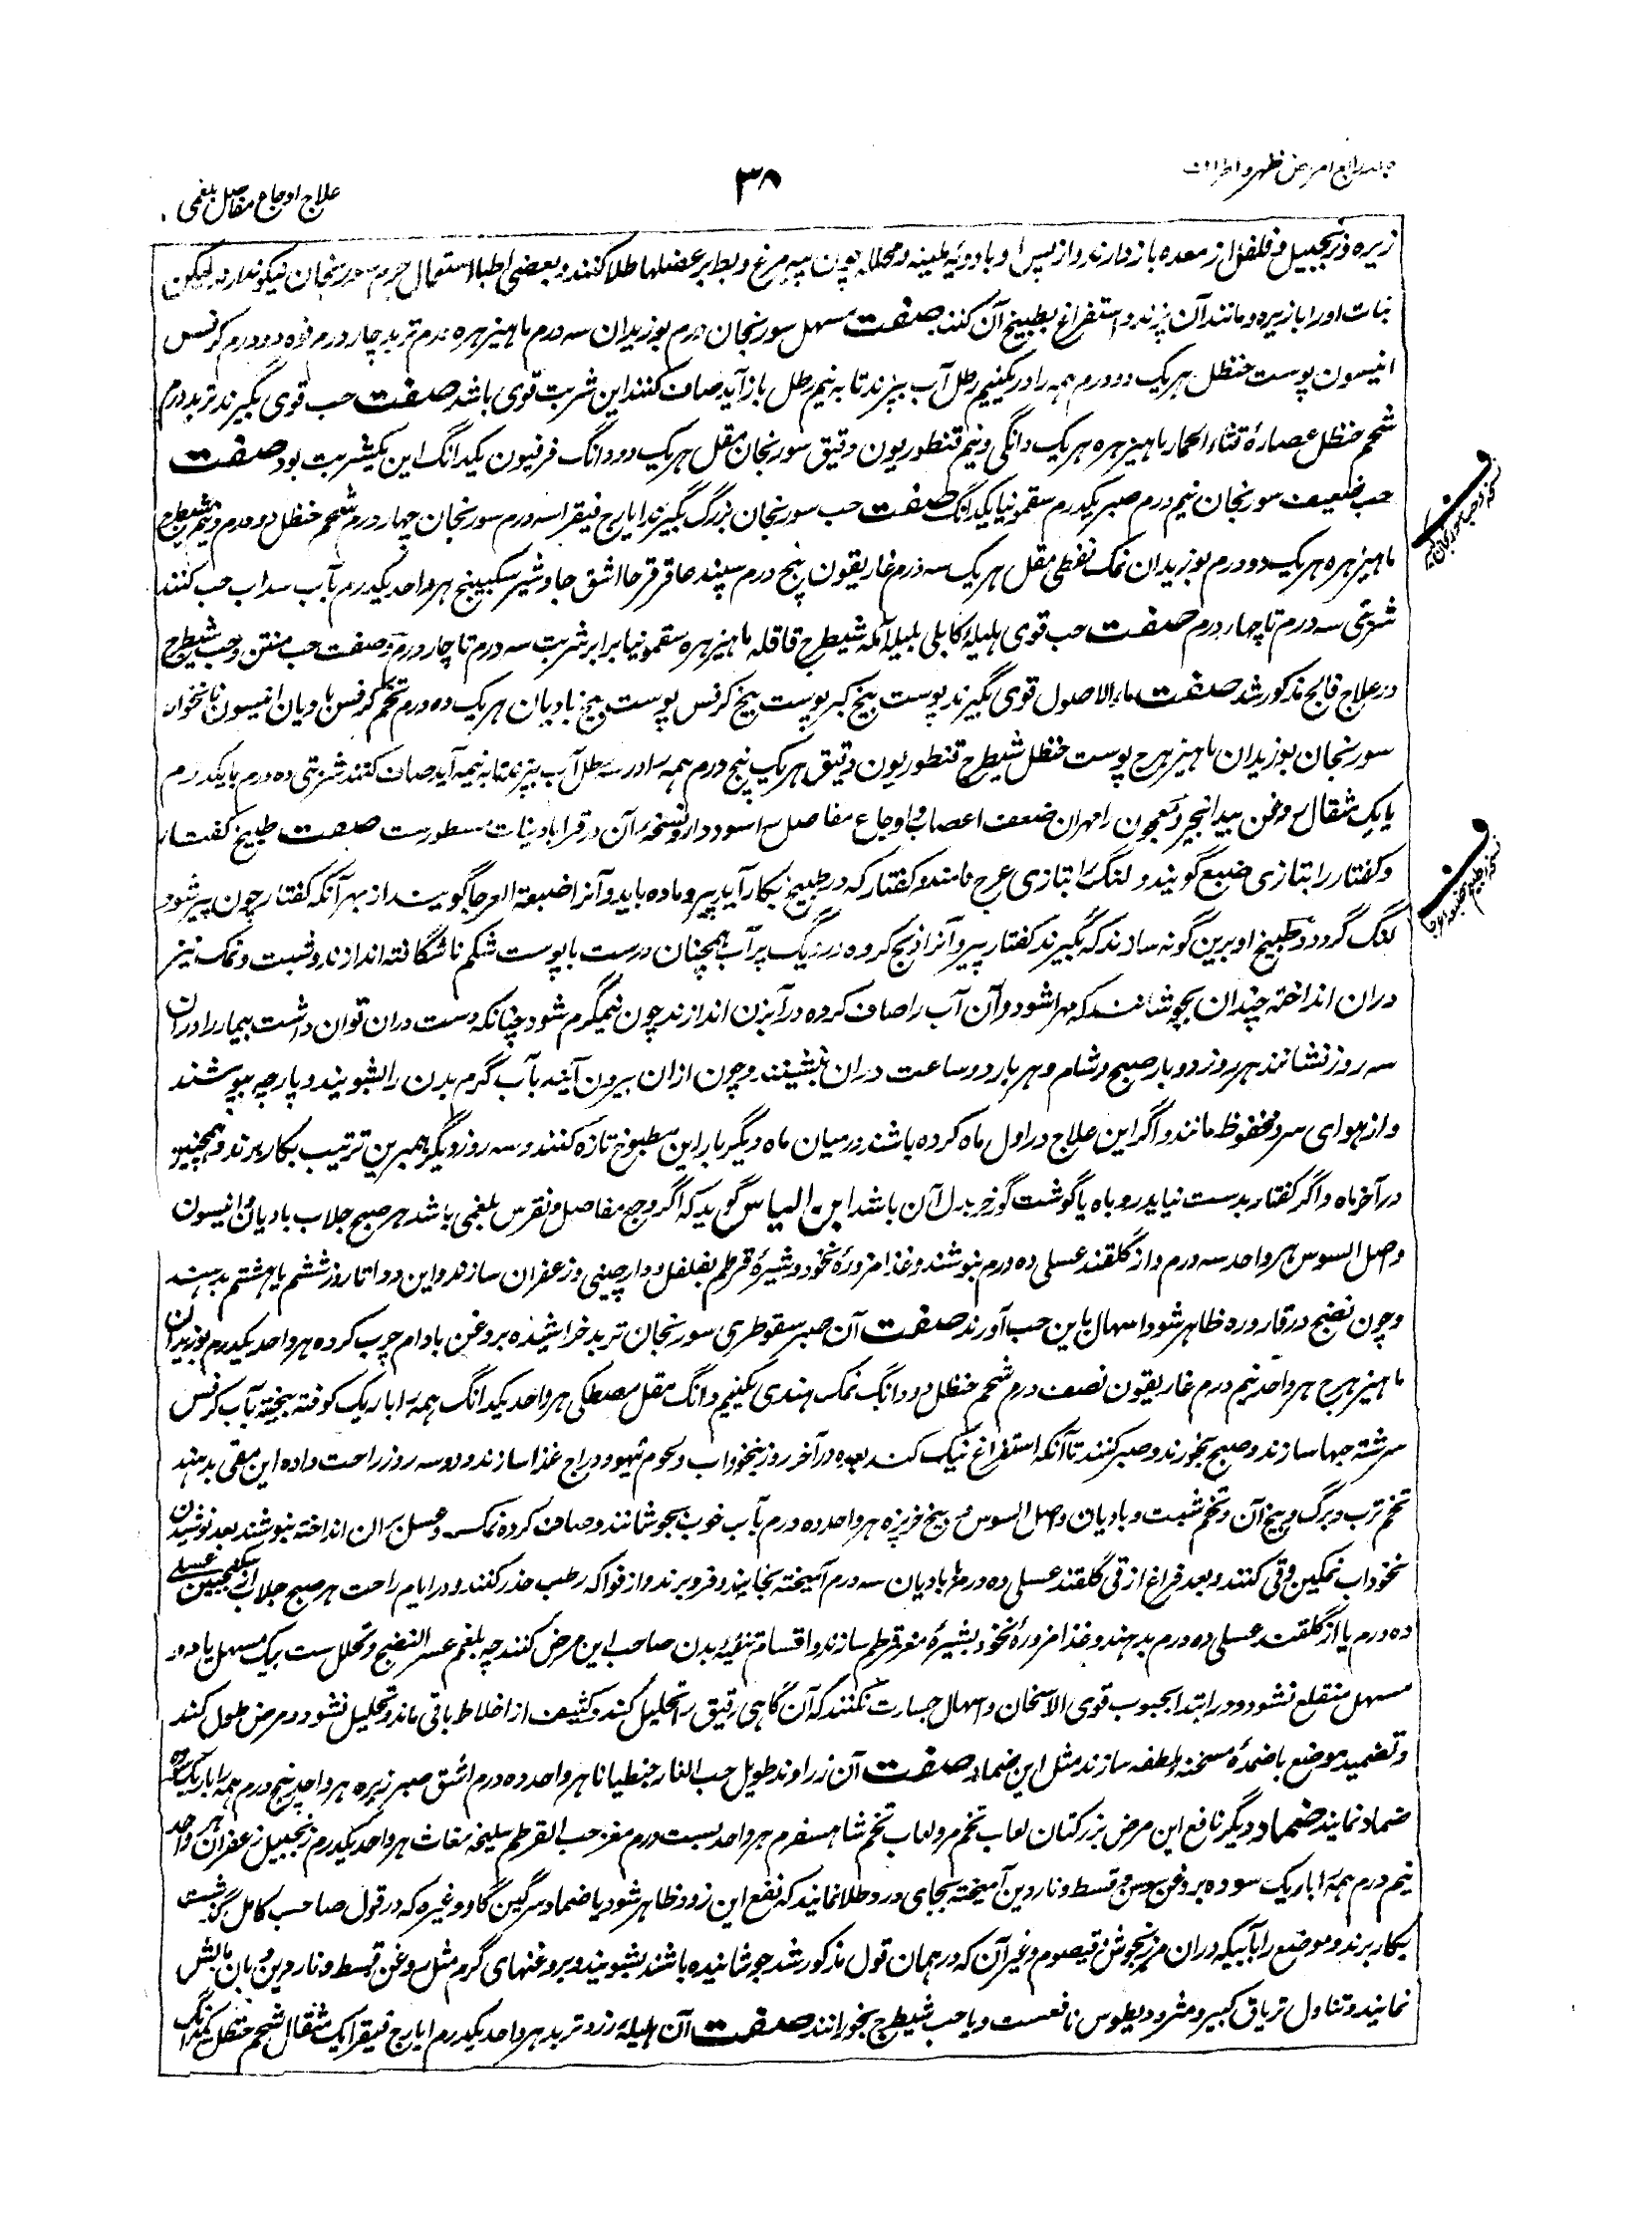 جلد رابع امراض ظهر و اطراف
۳۸
علاج اوجاع مفاصل بلغمی
زیره و زنجبیل و فلفل از معده باز دارند و از پس او بادویهٔ ملینه و محلله چون پیه مرغ و بط بر عضلها طلا کنند و بعضی اطبا استعمال جرم سورنجان نیکو ندارند لیکن
نبات او را با زیره و مانند آن پزند و استفراغ بطبیخ آن کنند صفت مسهل سورنجان درم بوزیدان سه درم ماهیزهره درم تربد چار درم فوه دو درم کرفس
انیسون پوست حنظل هریک دو درم همه را در یکنیم رطل آب بپزند تا به نیم رطل باز آید صاف کنند این شربت قوی باشد صفت حب قوی بگیرند تربد درم
شحم حنظل عصارهٔ قثاء الحمار ماهیزهره هریک دانگی و نیم قنطوریون دقیق سورنجان مقل هریک دو دانگ فرفیون یکدانگ این یکشربت بود صفت
حب ضعیف سورنجان نیم درم صبر یکدرم سقمونیا یکدانگ صفت حب سورنجان بزرگ بگیرند ایارج فیقرا سه درم سورنجان چهار درم شحم حنظل دو درم و نیم شیطرج
ماهیزهره هریک دو درم بوزیدان نمک نفطی مقل هریک سه درم غاریقون پنج درم سپند عاقرقرحا اشق جاوشیر سکبینج هر واحد یکدرم بآب سداب حب کنند
شربتی سه درم تا چهار درم صفت حب قوی هلیلهٔ کابلی بلیله آمله شیطرج قاقله ماهیزهره سقمونیا برابر شربت سه درم تا چار درم و صفت حب منتن و حب شیطرج
در علاج فالج مذکور شد صفت ماء الاصول قوی بگیرند پوست بیخ کبر پوست بیخ کرفس پوست بیخ بادیان هریک ده درم تخم کرفس بادیان انیسون نانخواه
سورنجان بوزیدان ماهیزهرج پوست حنظل شیطرج قنطوریون دقیق هریک پنج درم همه را در سه رطل آب بپزند تا به نیمه آید صاف کنند شربتی ده درم با یکدرم
یا یک مثقال روغن بیدانجیر و معجون رامهران ضعف اعصاب و اوجاع مفاصل را سود دارد و نسخهٔ آن در قرابادینات مسطورست صفت طبیخ کفتار
و کفتار را بتازی ضبع گویند و لنگ را بتازی عرج نامند و کفتار که در طبیخ بکار آید پیر و ماده باید و آنرا ضبعة العرجا گویند از بهر آنکه کفتار چون پیر شود
لنگ گردد و طبیخ او برین گونه سازند که بگیرند کفتار پیر و آنرا ذبح کرده در دیگ پر آب همچنان درست با پوست شکم ناشگافته اندازند و شبت و نمک نیز
دران انداخته چندان بجوشانند که مهرا شود و آن آب را صاف کرده در آبزن اندازند چون نیمگرم شود چنانکه دست دران توان داشت بیمار را دران
سه روز نشانند هر روز دو بار صبح و شام و هر بار دو ساعت دران بنشینند و چون ازان بیرون آیند بآب گرم بدن را بشویند و پارچه بپوشند
و از هوای سرد محفوظ مانند و اگر این علاج در اول ماه کرده باشند در میان ماه دیگر بار این مطبوخ تازه کنند و سه روز دیگر همبرین ترتیب بکار برند و همچنین
در آخر ماه و اگر کفتار بدست نیاید روباه یا گوشت گورخر بدل آن باشد ابن الیاس گوید که اگر وجع مفاصل و نقرس بلغمی باشد هر صبح جلاب بادیان و انیسون
و اصل السوس هر واحد سه درم و از گلقند عسلی ده درم بنوشند و غذا مزورهٔ نخود و شیرهٔ قرطم بفلفل و دارچینی و زعفران سازند و این دوا تا روز ششم یا هشتم بدهند
و چون نضج در قاروره ظاهر شود اسهال باین حب آورند صفت آن صبر سقوطری سورنجان تربد خراشیده بروغن بادام چرب کرده هر واحد یکدرم بوزیدان
ماهیزهرج هر واحد نیم درم غاریقون نصف درم شحم حنظل دو دانگ نمک هندی یکنیم دانگ مقل مصطکی هر واحد یکدانگ همه را باریک کوفته بیخته بآب کرفس
سرشته حبها سازند و صبح بخورند و صبر کنند تا آنکه استفراغ نیک کند بعده در آخر روز بنخوداب و لحوم تیهو و دراج غذا سازند و دو سه روز راحت داده این مقی بدهند
تخم ترب و برگ و بیخ آن و تخم شبت و بادیان و اصل السوس و بیخ خربزه هر واحد ده درم بآب خوب بجوشانند و صاف کرده نمک و عسل بران انداخته بنوشند بعد نوشیدن
نخوداب نمکین و قی کنند و بعد فراغ از قی گلقند عسلی ده درم با بادیان سه درم آمیخته بخایند و فرو برند و از فواکه رطب حذر کنند و در ایام راحت هر صبح جلاب از سکنجبین عسلی
ده درم یا از گلقند عسلی ده درم بدهند و غذا مزورهٔ نخود بشیرهٔ مغز قرطم سازند و اقسام تنقیهٔ بدن صاحب این مرض کنند چه بلغم عسر النضج و تحلل ست بیک مسهل یا دو
مسهل منقلع نشود و در ابتدا بحبوب قوی الاسخان و اسهال جسارت نکنند که آن گاهی رقیق را تحلیل کند و کثیف از اخلاط باقی ماند و تحلیل نشود و مرض طول کند
و تضمید موضع باضمدهٔ مسخنه و ملطفه سازند مثل این ضماد صفت آن زراوند طویل حب الغار جنطیانا هر واحد ده درم اشق صبر زیره هر واحد پنج درم همه را باریک سوده
ضماد نمایند ضماد دیگر نافع این مرض بزر کتان لعاب تخم مرو لعاب تخم شاهسفرم هر واحد بست درم مغز حب القرطم سلیخه مغاث هر واحد یکدرم زنجبیل زعفران هر واحد
نیم درم همه را باریک سوده بروغن سوسن و قسط و ناردین آمیخته بجای درد طلا نمایند که نفع این زود ظاهر شود یا ضماد سرگین گاو و غیره که در قول صاحب کامل گذشت
بکار برند و موضع را بآبیکه دران مرزنجوش قیصوم و غیر آن که در همان قول مذکور شد جوشانیده باشند بشویند و بروغنهای گرم مثل روغن قسط و ناردین و بان مالش
نمایند و تناول تریاق کبیر و مثرودیطوس نافعست و یا حب شیطرج بخورانند صفت آن هلیلهٔ زرد تربد هر واحد یکدرم ایارج فیقرا یک مثقال شحم حنظل یکدانگ